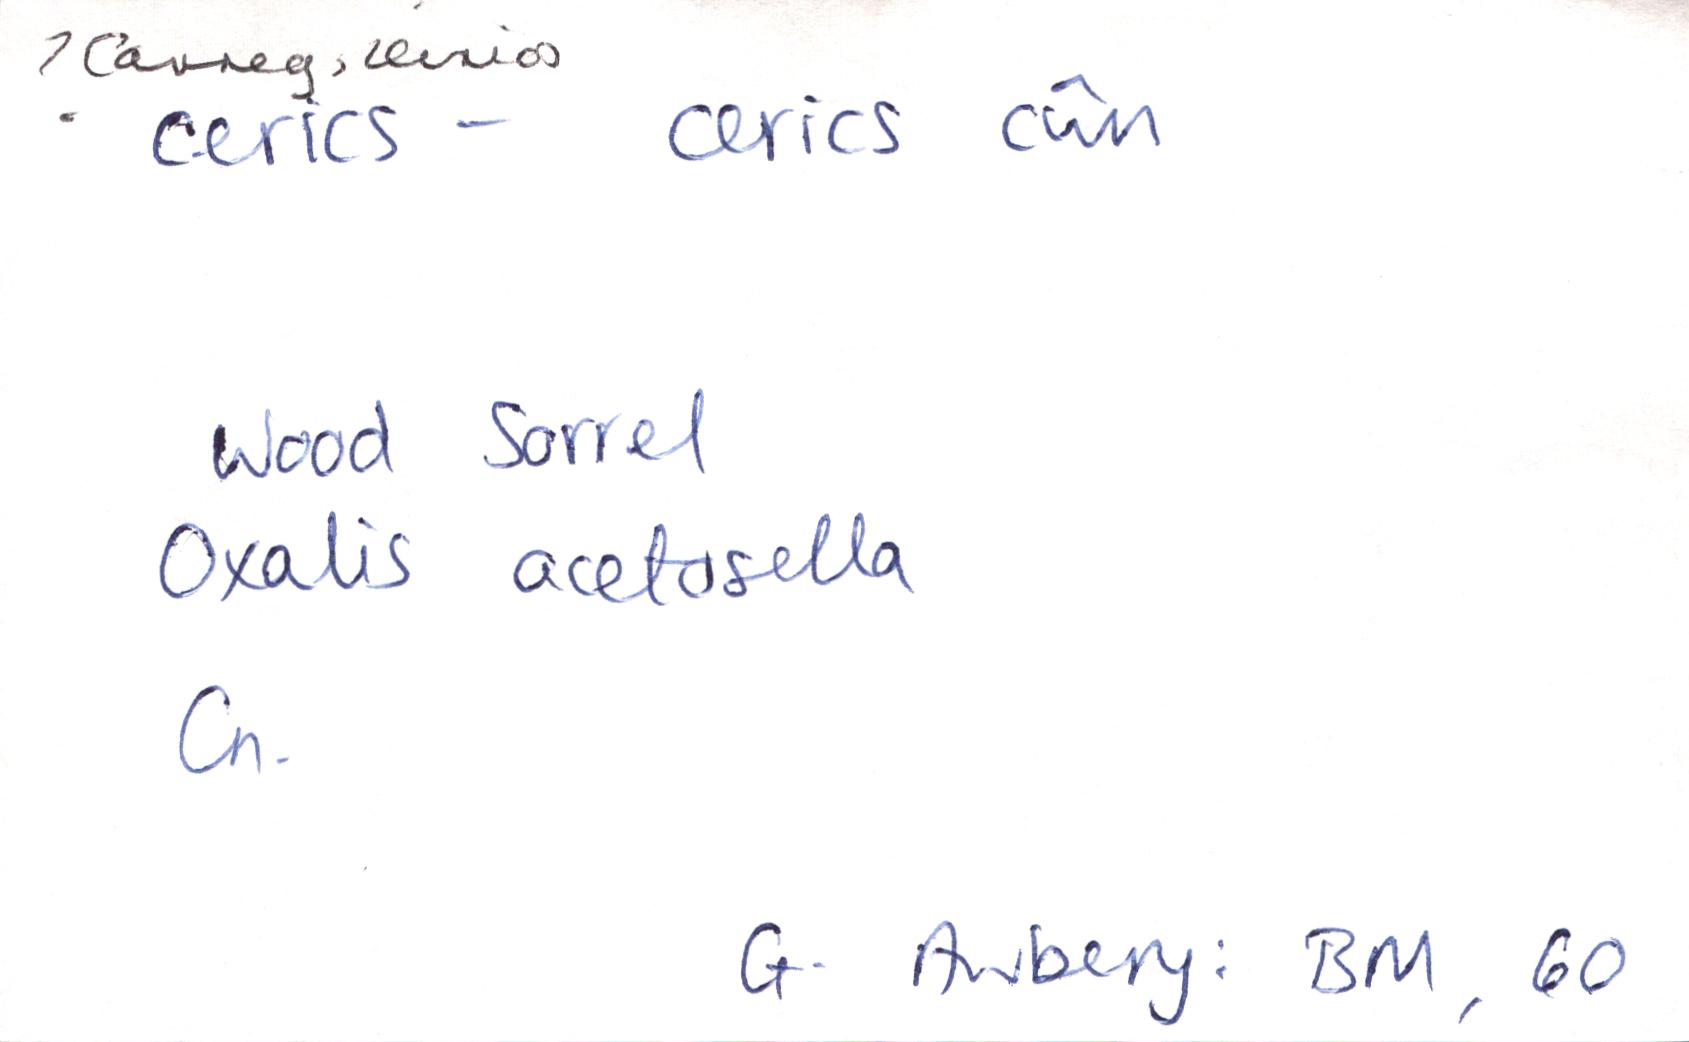 ? Carreg, cerrios
cerics - cerics cân
Wood Sorrel
Oxalis acetosella
Cn.
G. Awbery: BM, 60